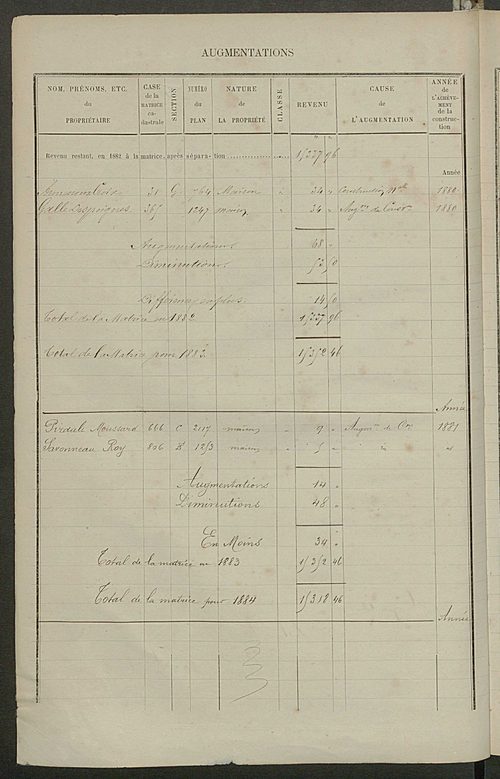 AUGMENTATIONS
NOM, PRÉNOMS, ETC. du PROPRIÉTAIRE
CASE de la MATRICE ca-dastrale
SECTION
NUMÉRO du PLAN
NATURE de LA PROPRIÉTÉ
CLASSE
REVENU
CAUSE de L'AUGMENTATION
ANNÉE de L'ACHÈVE-MENT de la construc-tion
Revenu restant, en 1882 à la matrice, après séparation 15337 96
Année
38 G 764 Maison " 34 " Construction 1880
367 1247 maison " 34 " 1880
Augmentations 68 "
Diminutions
Différence en plus 14 50
Total de la Matrice en 1882 15337 96
Total de la Matrice pour 1883 15352 46
Année
Moussard 666 C 2117 maison " 9 " 1881
Savonneau Roy 806 maison " 5 " id "
Augmentations 14 "
Diminutions 48 "
En Moins 34 "
Total de la matrice en 1883 15352 46
Total de la matrice pour 1884 15318 46
Année